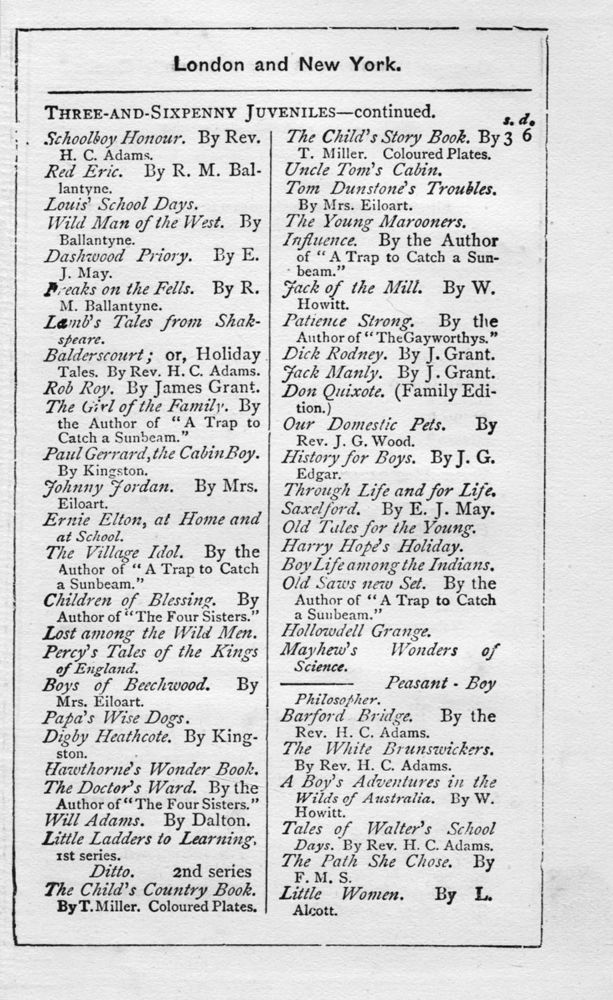 London and New York.
THREE-AND-SIXPENNY JUVENILES—continued.
s. d.
Schoolboy Honour. By Rev.
H. C. Adams.
Red Eric. By R. M. Bal-
lantyne.
Louis' School Days.
Wild Man of the West. By
Ballantyne.
Dashwood Priory. By E.
J. May.
Freaks on the Fells. By R.
M. Ballantyne.
Lamb's Tales from Shak-
speare.
Balderscourt; or, Holiday
Tales. By Rev. H. C. Adams.
Rob Roy. By James Grant.
The Girl of the Family. By
the Author of "A Trap to
Catch a Sunbeam."
Paul Gerrard, the Cabin Boy.
By Kingston.
Johnny Jordan. By Mrs.
Eiloart.
Ernie Elton, at Home and
at School.
The Village Idol. By the
Author of "A Trap to Catch
a Sunbeam."
Children of Blessing. By
Author of "The Four Sisters."
Lost among the Wild Men.
Percy's Tales of the Kings
of England.
Boys of Beechwood. By
Mrs. Eiloart.
Papa's Wise Dogs.
Digby Heathcote. By King-
ston.
Hawthorne's Wonder Book.
The Doctor's Ward. By the
Author of "The Four Sisters."
Will Adams. By Dalton.
Little Ladders to Learning,
1st series.
Ditto. 2nd series
The Child's Country Book.
By T. Miller. Coloured Plates.
The Child's Story Book. By 3 6
T. Miller. Coloured Plates.
Uncle Tom's Cabin.
Tom Dunstone's Troubles.
By Mrs. Eiloart.
The Young Marooners.
Influence. By the Author
of "A Trap to Catch a Sun-
beam."
Jack of the Mill. By W.
Howitt.
Patience Strong. By the
Author of "The Gayworthys."
Dick Rodney. By J. Grant.
Jack Manly. By J. Grant.
Don Quixote. (Family Edi-
tion.)
Our Domestic Pets. By
Rev. J. G. Wood.
History for Boys. By J. G.
Edgar.
Through Life and for Life.
Saxelford. By E. J. May.
Old Tales for the Young.
Harry Hope's Holiday.
Boy Life among the Indians.
Old Saws new Set. By the
Author of "A Trap to Catch
a Sunbeam."
Hollowdell Grange.
Mayhew's Wonders of
Science.
——— Peasant - Boy
Philosopher.
Barford Bridge. By the
Rev. H. C. Adams.
The White Brunswickers.
By Rev. H. C. Adams.
A Boy's Adventures in the
Wilds of Australia. By W.
Howitt.
Tales of Walter's School
Days. By Rev. H. C. Adams.
The Path She Chose. By
F. M. S.
Little Women. By L.
Alcott.